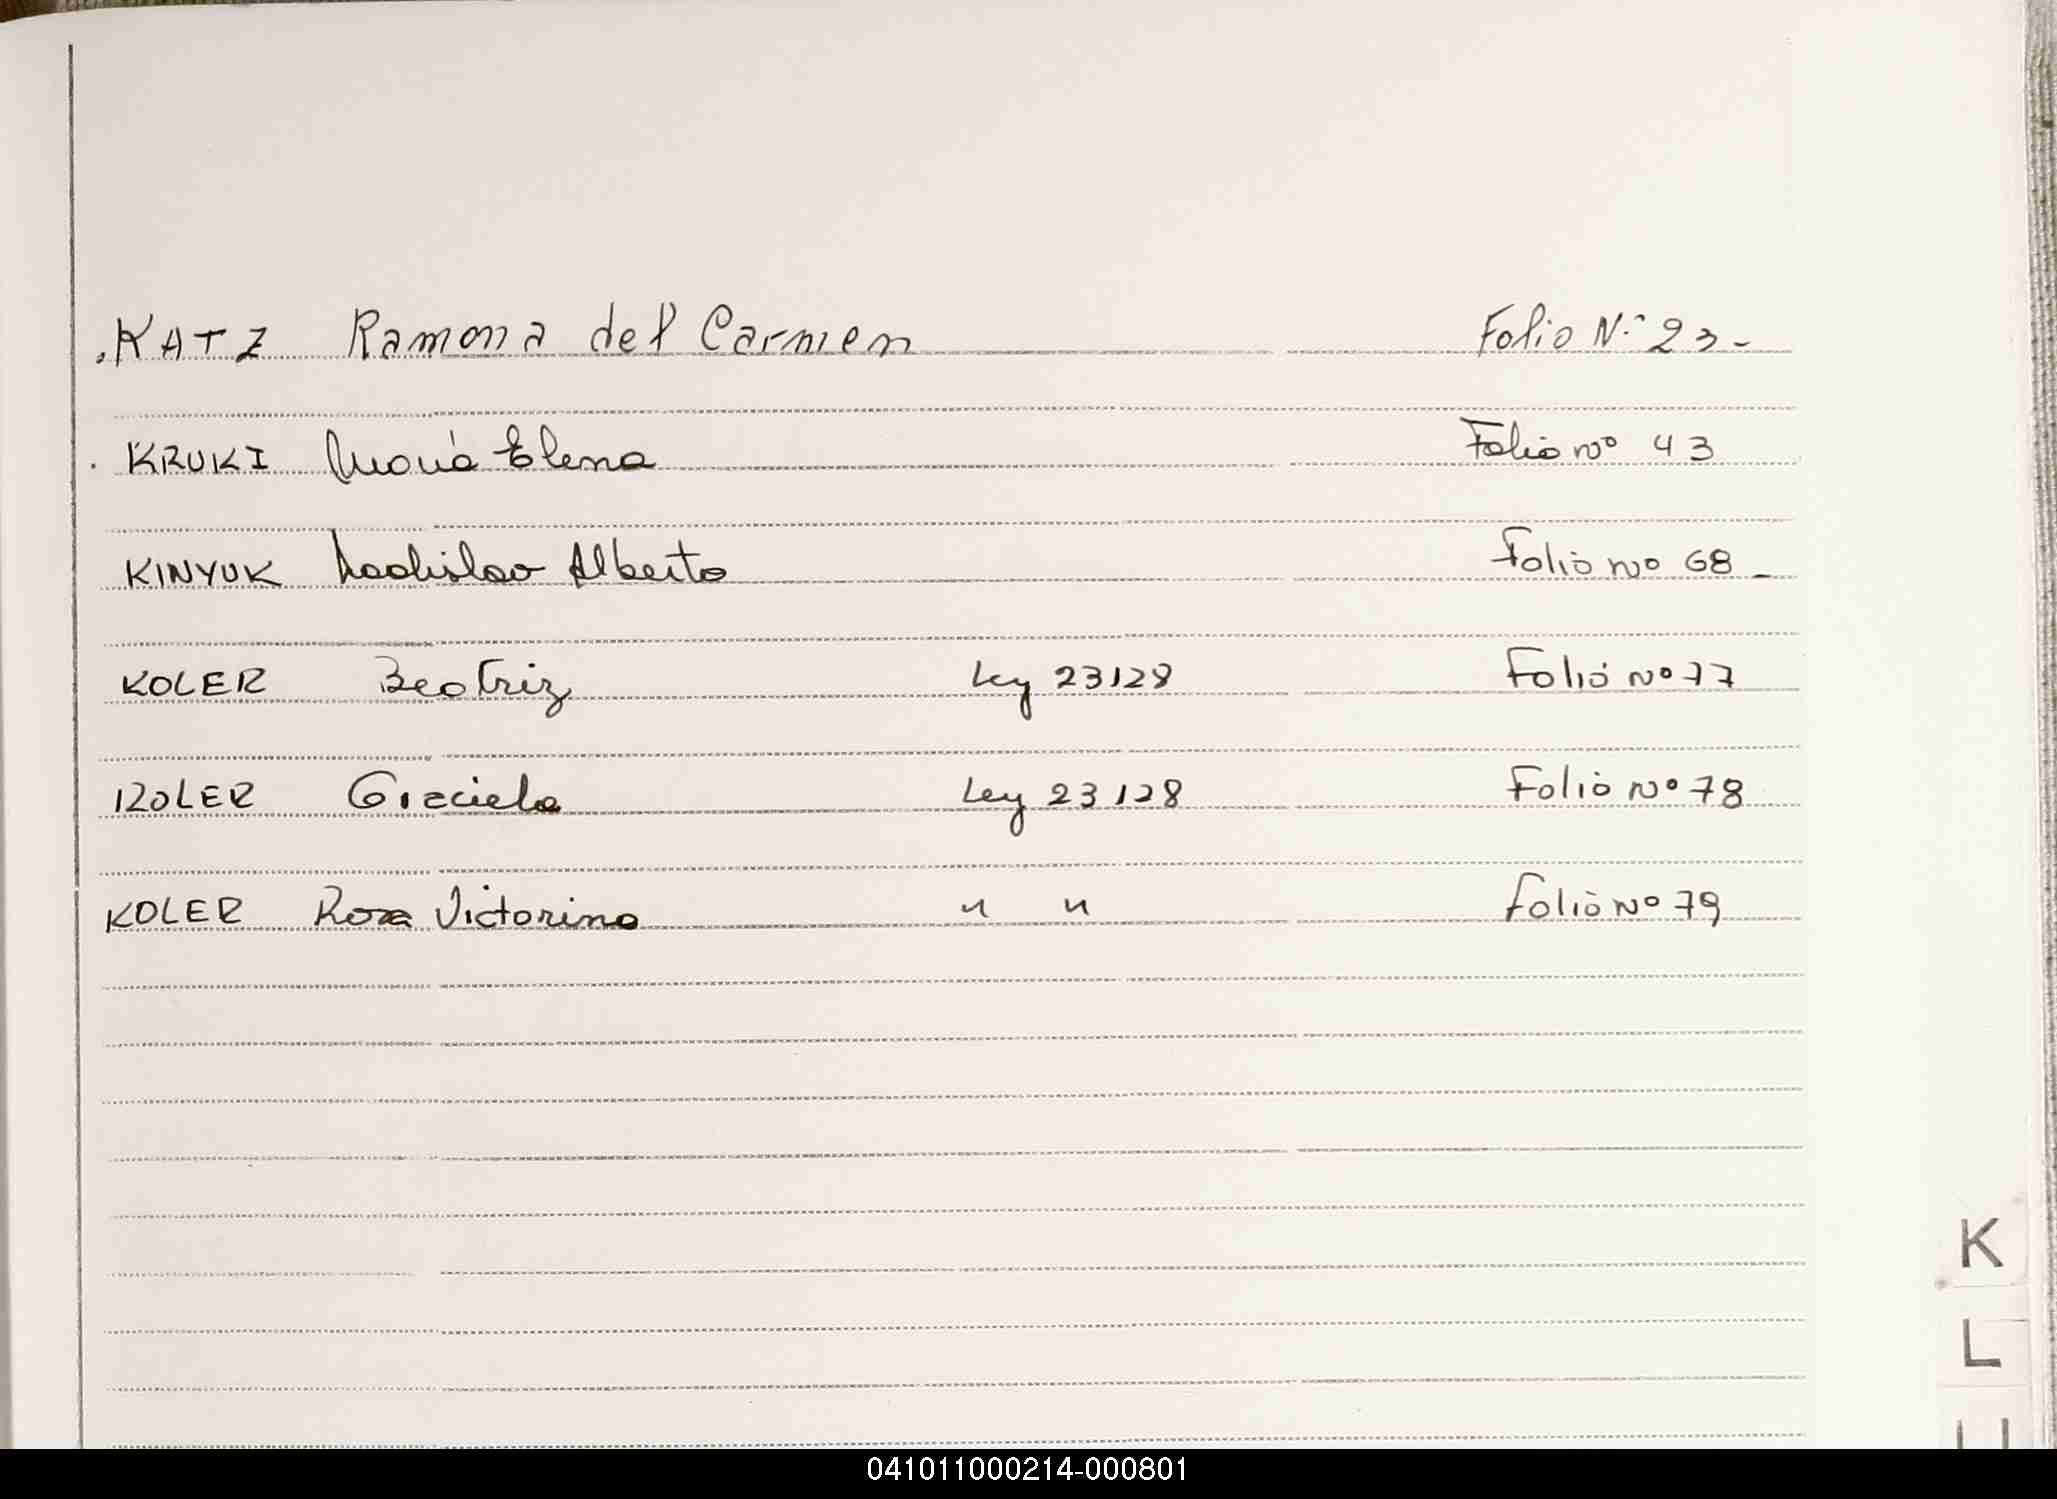 . KATZ Ramona del Carmen Folio N.º 23-
. KRUKI María Elena Folio nº 43
KINYUK Ladislao Alberto Folio nº 68 -
KOLER Beatriz Ley 23128 Folio Nº 77
KOLER Graciela Ley 23128 Folio Nº 78
KOLER Rosa Victorina " " Folio Nº 79
K
L
041011000214-000801